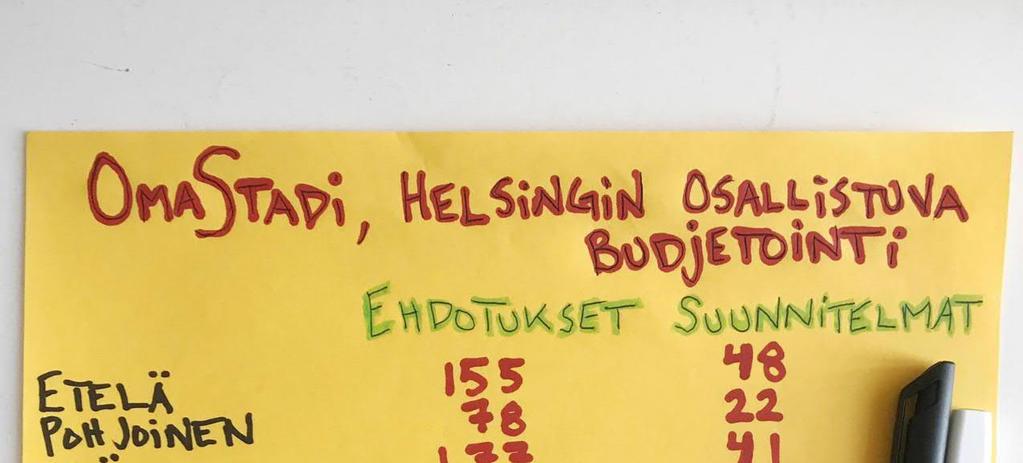 OMASTADI, HELSINGIN OSALLISTUVA
BUDJETOINTI
EHDOTUKSET SUUNNITELMAT
ETELÄ 155 48
POHJOINEN 78 22